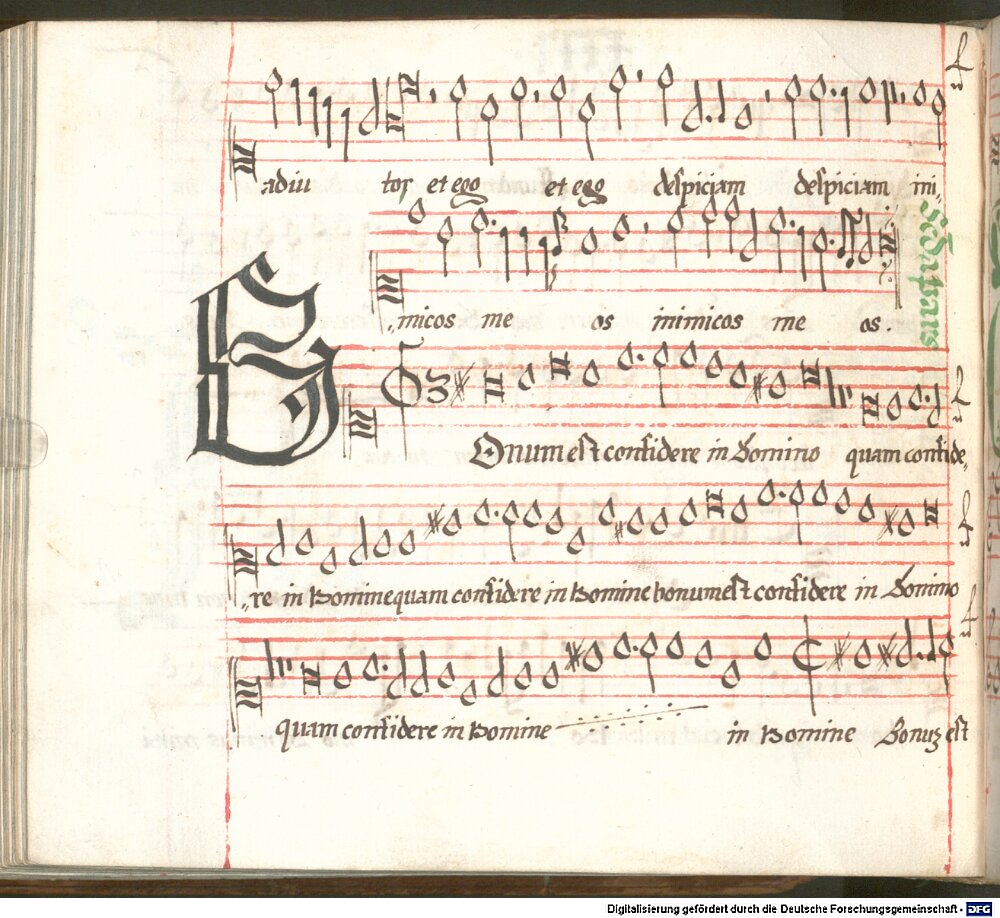 adiu tor et ego et ego despiciam despiciam ini,
,,micos me os inimicos me os.
Secunda pars
B Onum est confidere in Domino quam confide,
,,re in homine quam confidere in homine bonum est confidere in Domino
quam confidere in homine in homine Bonuʒ est
Digitalisierung gefördert durch die Deutsche Forschungsgemeinschaft - DFG